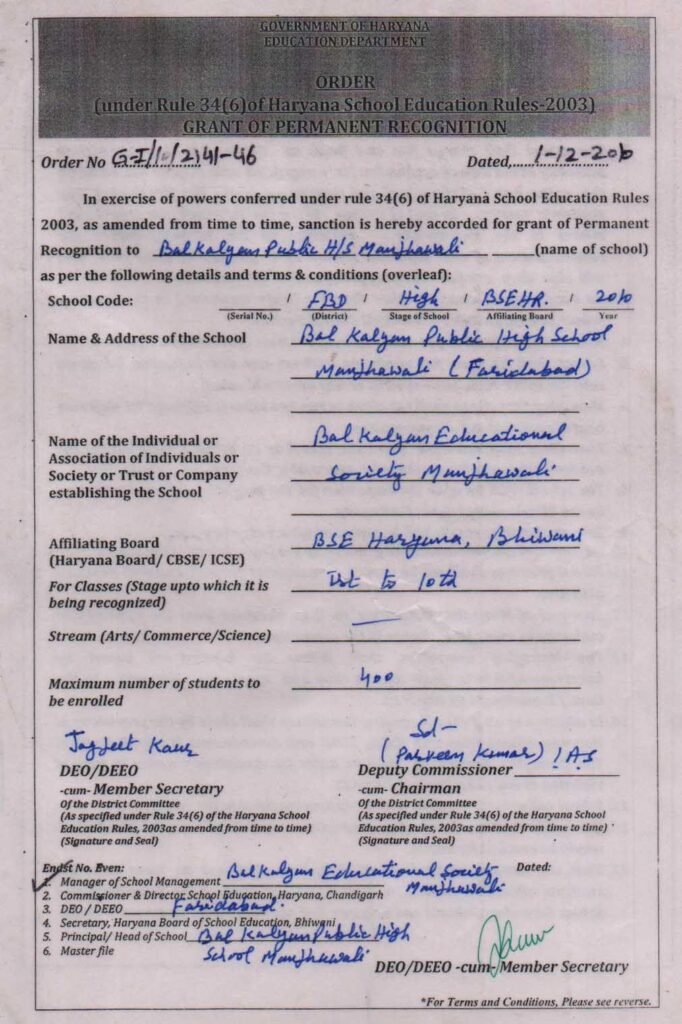 GOVERNMENT OF HARYANA
EDUCATION DEPARTMENT
ORDER
(under Rule 34(6)of Haryana School Education Rules-2003)
GRANT OF PERMANENT RECOGNITION
Order No G-I/1/2141-46 Dated,......1-12-2010
In exercise of powers conferred under rule 34(6) of Haryana School Education Rules
2003, as amended from time to time, sanction is hereby accorded for grant of Permanent
Recognition to Bal Kalyan Public H/S Manjhawali (name of school)
as per the following details and terms & conditions (overleaf):
School Code: / FBD / High / BSEHR. / 2010
(Serial No.) (District) Stage of School Affiliating Board Year
Name & Address of the School Bal Kalyan Public High School
Manjhawali (Faridabad)
Name of the Individual or Bal Kalyan Educational
Association of Individuals or
Society or Trust or Company Society Manjhawali
establishing the School
Affiliating Board BSE Haryana, Bhiwani
(Haryana Board/ CBSE/ ICSE)
For Classes (Stage upto which it is Ist to 10th
being recognized)
Stream (Arts/ Commerce/Science) —
Maximum number of students to 400
be enrolled
Jagjeet Kaur Sd-
(Parveen Kumar) IAS
DEO/DEEO Deputy Commissioner
-cum- Member Secretary -cum- Chairman
Of the District Committee Of the District Committee
(As specified under Rule 34(6) of the Haryana School (As specified under Rule 34(6) of the Haryana School
Education Rules, 2003as amended from time to time) Education Rules, 2003as amended from time to time)
(Signature and Seal) (Signature and Seal)
Endst No. Even: Dated:
1. Manager of School Management Bal Kalyan Educational Society
Manjhawali
2. Commissioner & Director School Education, Haryana, Chandigarh
3. DEO / DEEO Faridabad.
4. Secretary, Haryana Board of School Education, Bhiwani
5. Principal/ Head of School Bal Kalyan Public High
6. Master file School Manjhawali
DEO/DEEO -cum- Member Secretary
*For Terms and Conditions, Please see reverse.